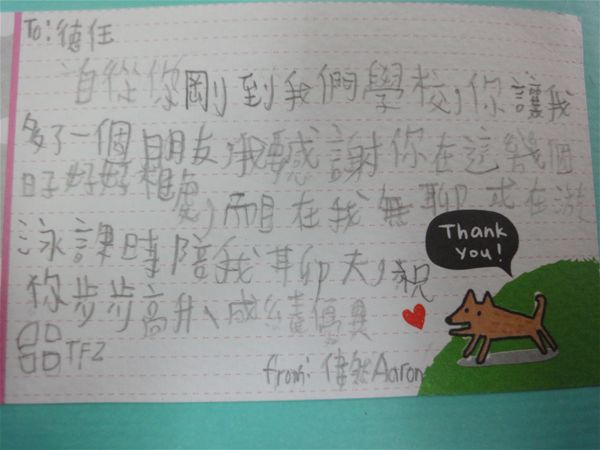 To:德任
自從你剛到我們學校,你讓我
多了一個朋友,我要感謝你在這幾個
日子好好相處,而且在我無聊或在游
泳課時陪我聊天,祝
你步步高升、成績優異
TFZ
from: 偉然Aaron
Thank
you!